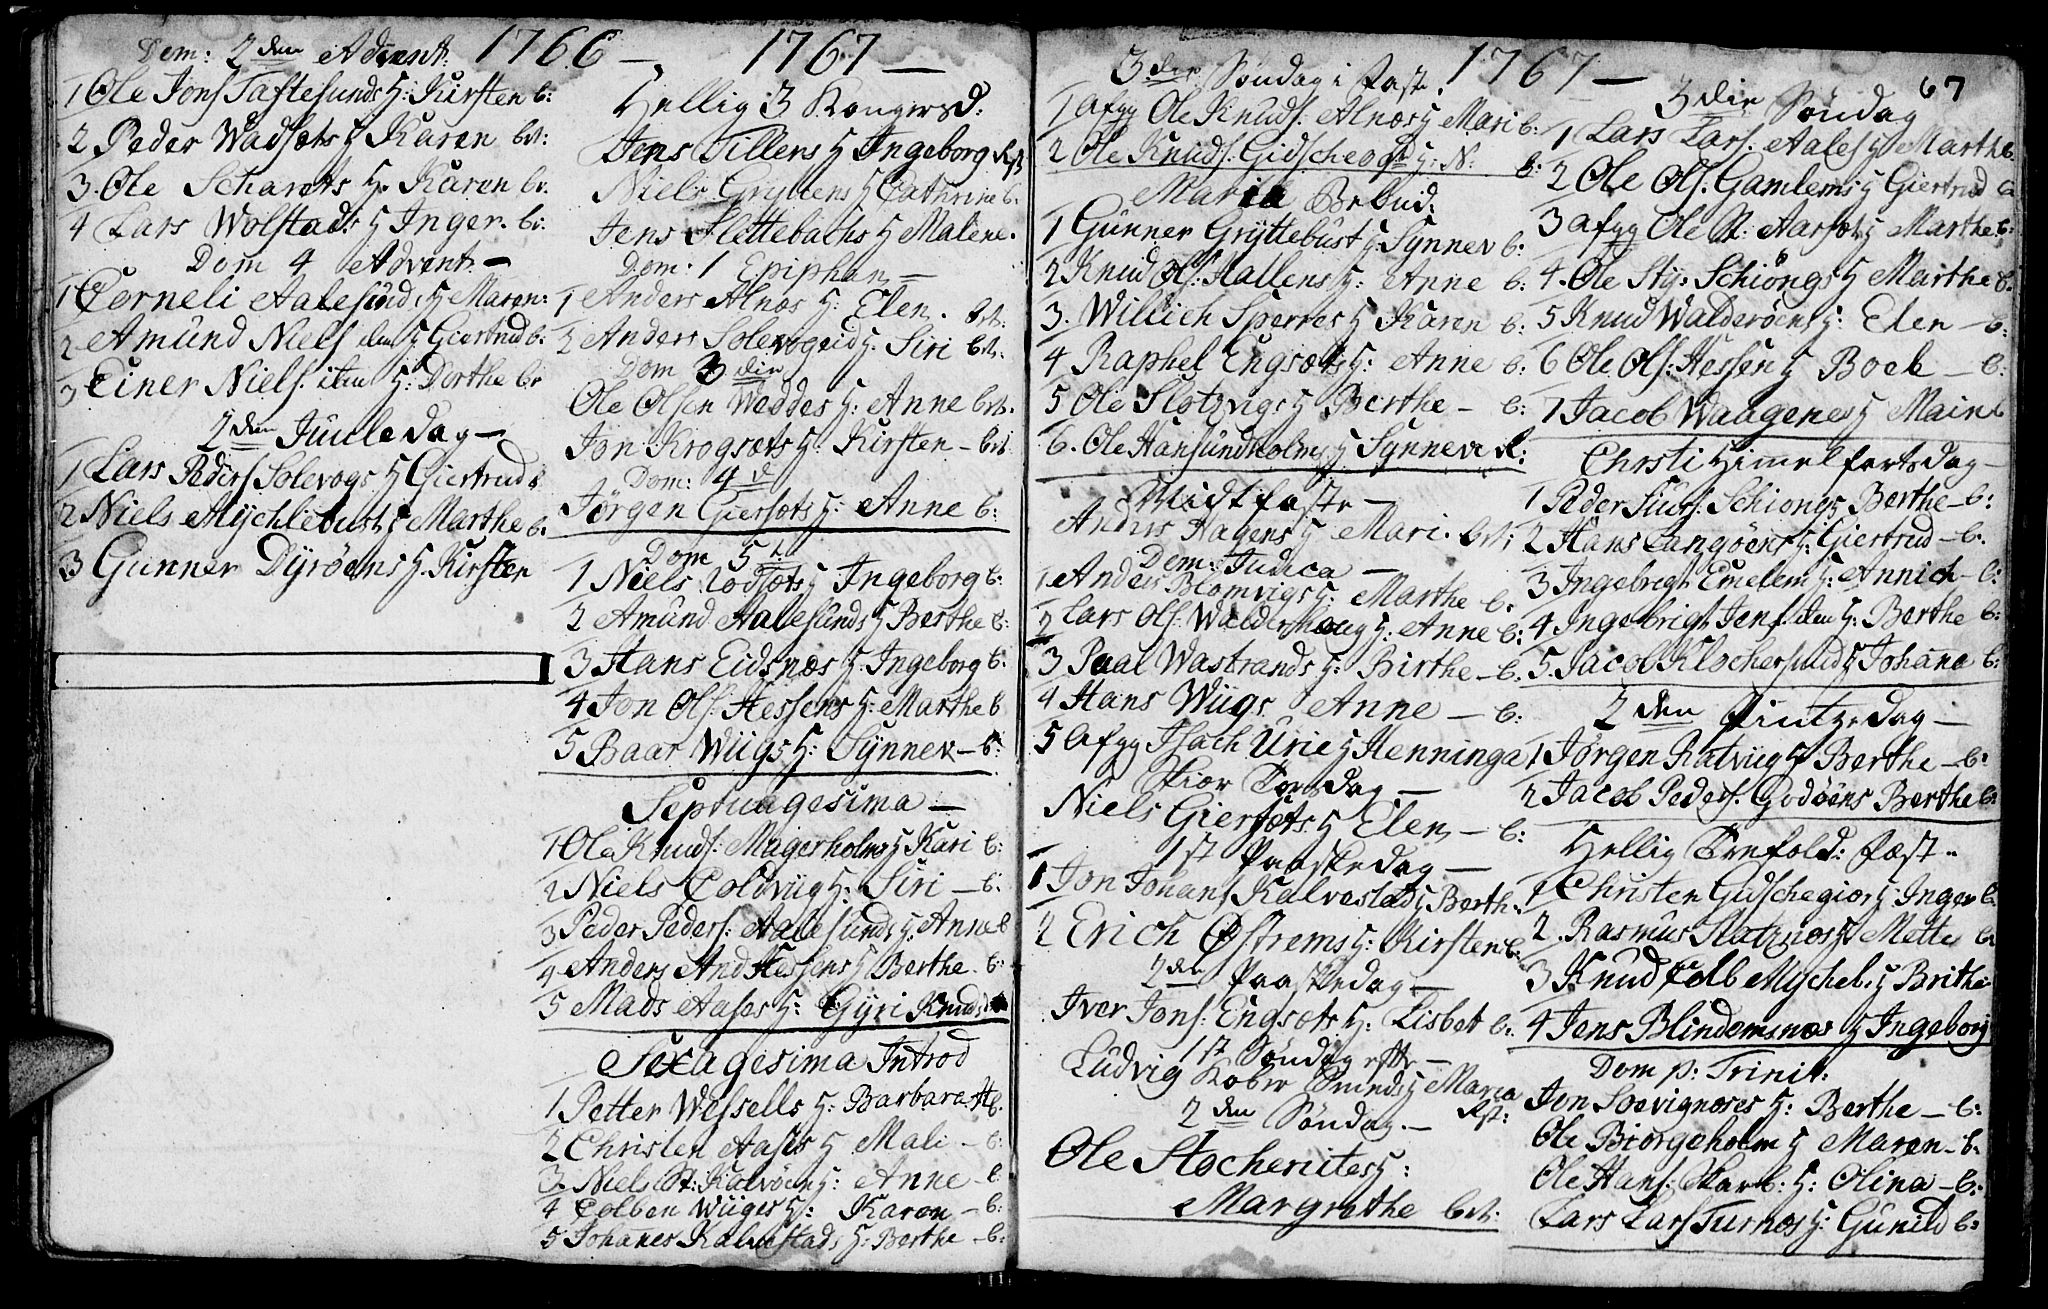 Dom: 2den Advent. 1766 –
1 Ole Jons Taftesunds H: Kirsten b:
2 Peder Wadsæts H Karen bet:
3. Ole Scharets H. Karen be.
4 Lars Wolstads H Inger. be:
Dom 4 Advent –
1 Corneli Aalesunds H Maren:
2 Amund Niels den H Giertrud b.
3 Einer Niels. item H: Dorthe be
2den Juuledag –
1 Lars Peders Solevogs H Giertrud
2 Niels Mychlebust H Marthe b.
3 Gunner Dyrøens H. Kirsten
1767 –
Hellig 3 Kongersd:
Jens Tillers H Ingeborg Rst
Niels Gryttens H Cathrine b.
Jens Slettebachs H Malene.
Dom: 1 Epiphan –
1 Anders Alnæs H: Elen. bet:
2 Anders Solevogeid H. Siri bet.
Dom 3die
Ole Olsen Weddes H: Anne bet.
Jon Krogsæts H: Kirsten – bet
Dom: 4de
Jørgen Giersæts H: Anne b:
Dom 5t
1 Niels Rødsæts H Ingeborg b:
2 Amund Aalesunds H Berthe b:
3 Hans Eidsnæs H. Ingeborg b.
4 Jon Ols. Hessens H: Marthe b
5 Baar Wiigs H: Synnev – b:
Septuagesima –
1 Ole Knuds: Magerholms H Kari b:
2 Niels Coldviig H: Siri – b:
3 Peder Peders: Aalesunds H: Anne b
4 Anders And Hessens H Berthe. b:
5 Mads Aases H: Gyri Knuds
Sexagesima Introd
1 Petter Wessells H: Barbara H b.
2 Christen Aases H Mali – b:
3. Niels St: Kalvøen H: Anne – b
4 Colben Wiiges H: Karen – b:
5 Johanes Kalvestads H: Berthe – b:
1767 –
3die Søndag i Faste.
1 afgg Ole Knuds. Alnæs H Mari b:
2 Ole Knuds. Gidscheogr H: N: b:
Maria Bebud:
1 Gunner Gryttebust H: Synnev b:
2 Knud Ols. Hallens H: Anne b:
3. Willich Sperres H Karen b:
4 Raphel Engsæts H: Anne b:
5 Ole Slotzvigs H Berthe – b:
6. Ole Hansundholms H Synneve R:
Midfaste –
Anders Hagens H Mari. bet;
Dom: Judica –
1 Anders Blomvigs H: Marthe be
2 Lars Ols. Walderhoug H: Anne b:
3 Paal Wastrands H: Birthe – b:
4 Hans Wiigs Anne – b:
5 Afgg Isach Urie H Henninga
Skior Torsdag –
Niels Giersæts H Elen – b:
1st Paaskedag –
1 Jon Johans Kalvestad H Berth.
2 Erich Østrems H: Kirsten b.
2den Paaskedag –
Iver Jons. Engsæts H: Lisbet b:
1st Søndag efte –
Ludvig Kober Smeds H Maria Rst:
2den Søndag. –
Ole Stochenites H:
Margrethe bet:
67
3die Søndag
1 Lars Lars. Aales H Marthe b.
2 Ole Ols. Gamlems H Giertrud b
3 afgg Ole St: Aarsæt H Marthe b:
4. Ole Sty: Schiøngs H Marthe b.
5 Knud Walderøens H: Elen – b:
6 Ole Ols: Hessen H Boel – b:
7 Jacob Waagenes H Mari b
Christi Himmelfartsdag –
1 Peder Siurs. Schiong H Berthe – b:
2 Hans Langøens H: Giertrud – b.
3 Ingebrigt Emelem H: Annich – b:
4 Ingebrigt Jens. den H: Berthe b:
5. Jacob Klochersund H Johana b:
2den Pintzedag –
1 Jørgen Ratviig H Berthe – b:
2 Jacob Peders. Godøens Berthe b.
Hellig Trefold: Fæst –
1 Christen Gidschegior H: Inger b.
2. Rasmus Slotznæs H Mette b
3 Knud Colb Mychel. H Brithe
4 Jens Blindemsnæs H Ingeborg
Dom p: Trinit:
Jon Soevignæses H: Berthe – b:
Ole Biørgeholm H Maren – b.
Ole Hans. Skarb. H: Olina – b.
Lars Lars Turnæs H: Gunild b: